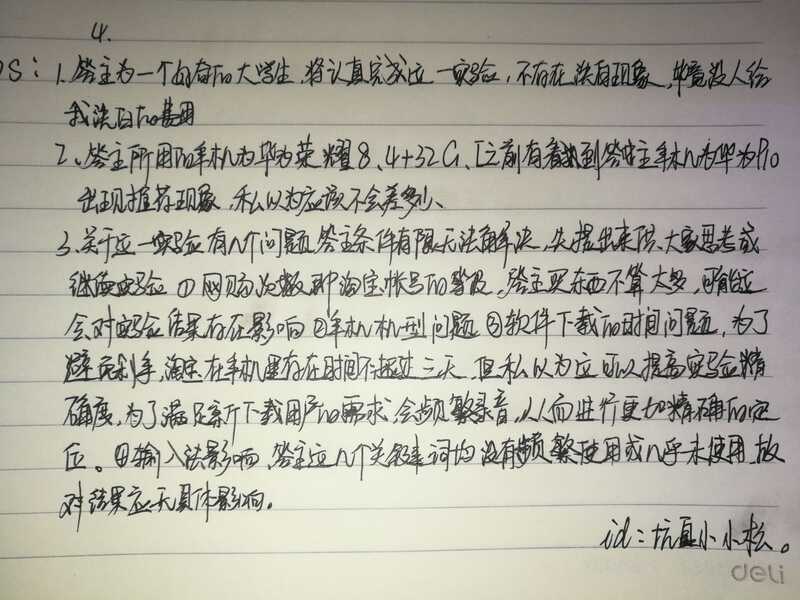 4.
PS：1.答主为一个自奋的大学生,将认真完成这一实验,不存在洗白现象,毕竟没人给
我洗白的费用
2、答主所用的手机为华为荣耀8、4+32G、[之前有看到答主手机为华为P10
出现推荐现象,私以为应该不会差多少、
3.关于这一实验有几个问题答主条件有限无法解决,先提出来供大家思考或
继续实验 ①网购次数和淘宝帐号的等级,答主买东西不算太多,可能这
会对实验结果存在影响②手机机型问题③软件下载的时间问题,为了
避免剁手,淘宝在手机里存在时间不超过三天,但私以为这可以提高实验精
确度,为了满足新下载用户的需求,会频繁录音,从而进行更加精确的定
位。④输入法影响,答主这几个关键词均没有频繁使用或几乎未使用,故
对结果应无具体影响。
id：坑直小小松。
deli